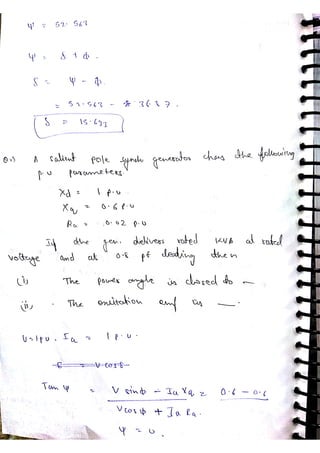 ψ = 52.563
ψ = δ + φ.
δ = ψ - φ.
= 52.563 - 36.87.
δ = 15.693
Q.) A salient pole synch generator chars the following
p.u parameters.
Xd = 1 p.u.
Xq = 0.6 p.u
Ra = 0.02 p.u
If the gen. delivers rated KVA at rated
voltage and at 0.8 pf leading then
(i) The power angle is closed to —
(ii) The excitation emf is —.
V = 1 pu. Ia = 1 p.u.
E = V cos δ
Tan ψ = V sin φ - Ia Xq = 0.6 - 0.6
V cos φ + Ia Ra.
ψ = 0.